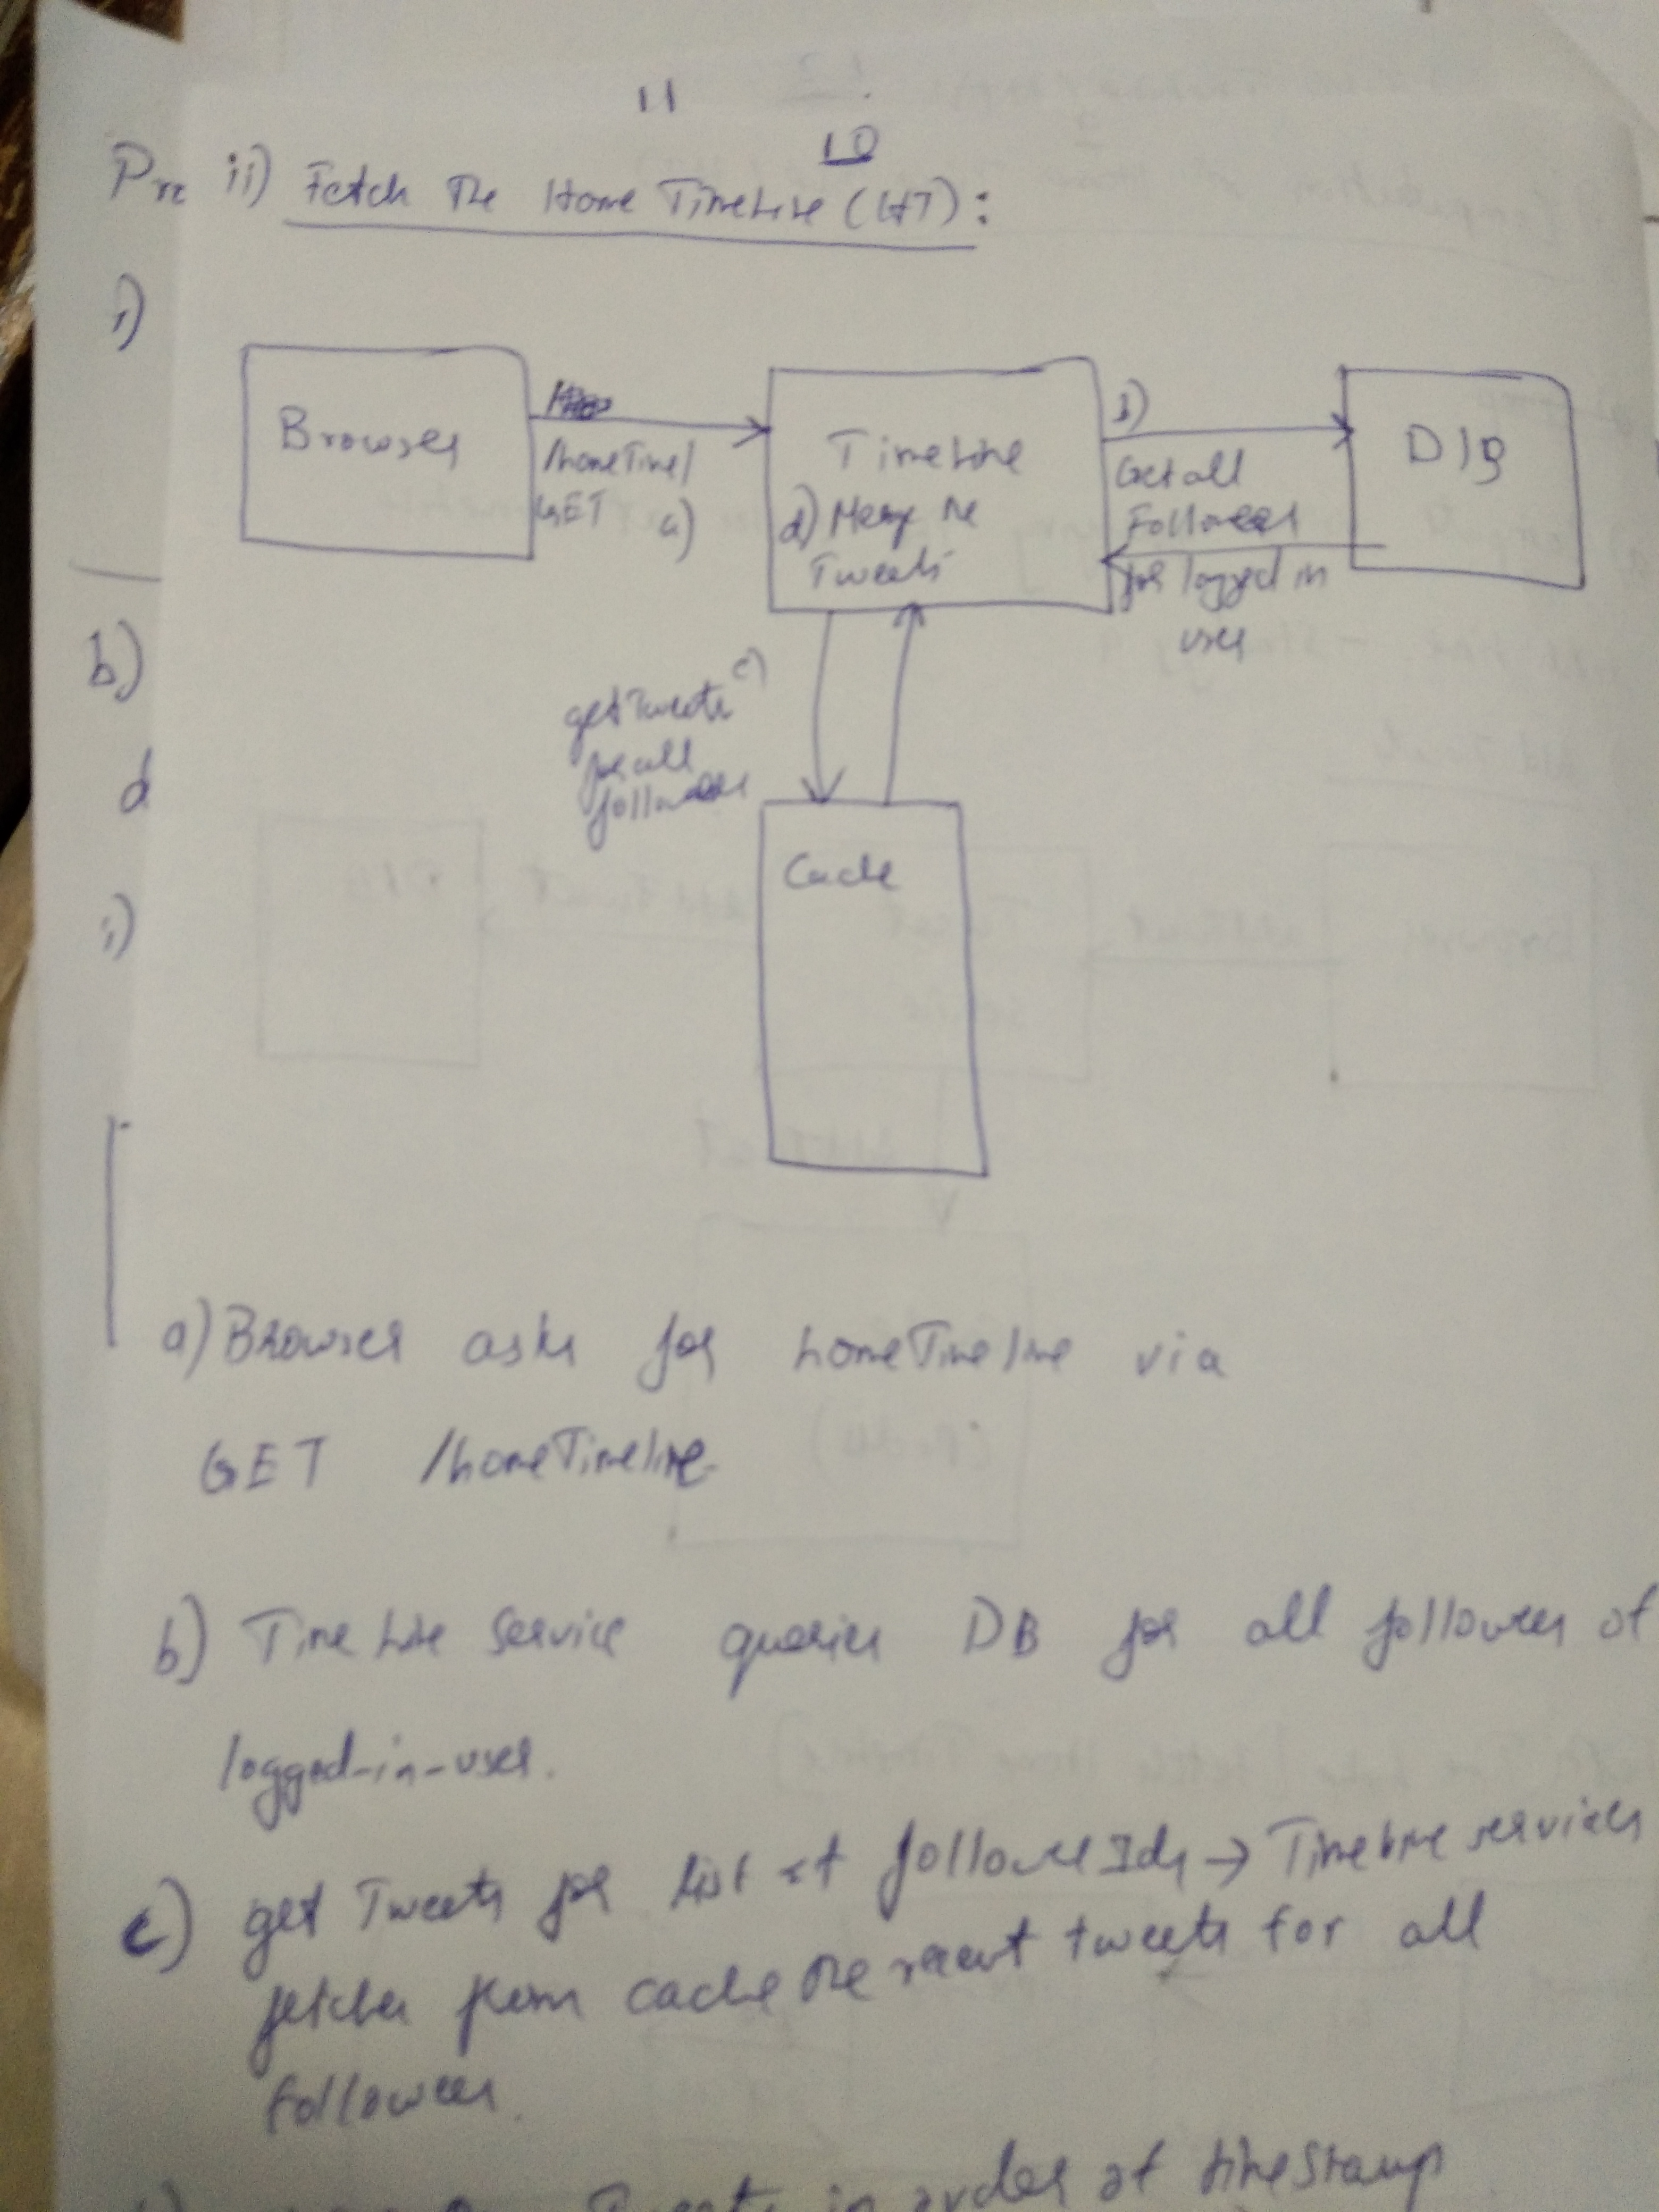 11
10
Pre ii) Fetch The Home TimeLine (HT):
i)
Browser
/homeTime/
GET a)
TimeLine
d) Merge the
Tweets
b)
Get all
Followees
for logged in
user
D/B
b)
c)
getTweets
for all
followees
d
Cache
i)
a) Browser asks for homeTimeline via
GET /homeTimeline
b) TimeLine Service queries DB for all followees of
logged-in-user.
c) get Tweets for list of followeeIds → Timeline services
fetches from cache the recent tweets for all
followees.
Tweets in order of timeStamp